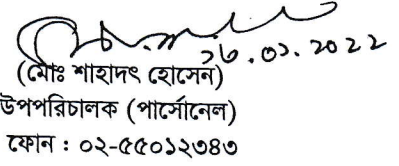 ২৬.০১.২০২২
(মোঃ শাহাদৎ হোসেন)
উপপরিচালক (পার্সোনেল)
ফোন : ০২-৫৫০১২৩৪৩